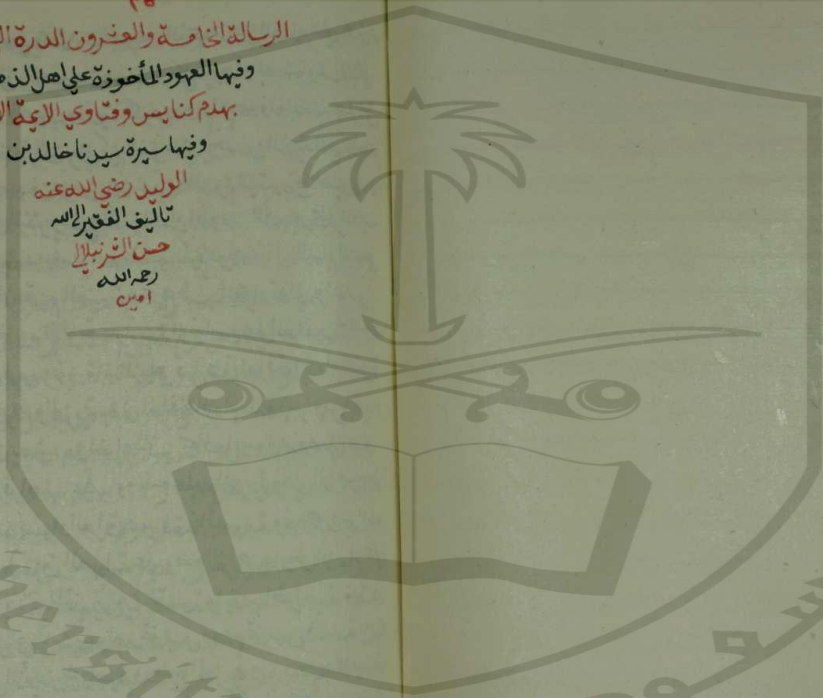 ٢٥
الرسالة الخامسة والعشرون الدرة
وفيها العهود المأخوذة علي اهل
بهدم كنايس وفتاوي الايمة
وفيها سيرة سيدنا خالد بن
الوليد رضي الله عنه
تاليف الفقير الى الله
حسن الشرنبلالي
رحمه الله
امين